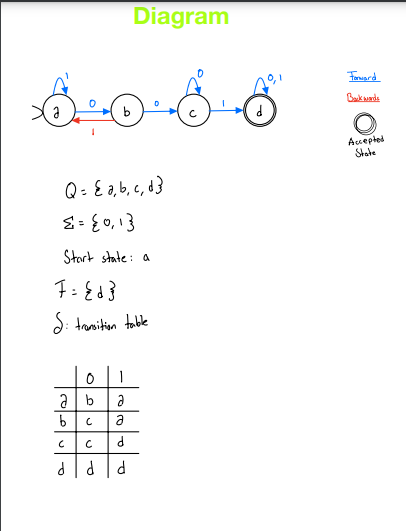 Diagram
1 0 0,1
0 0 1
a b c d
1
Forward
Backwards
Accepted
State
Q = {a, b, c, d}
Σ = {0, 1}
Start state: a
F = {d}
δ: transition table
0 1
a b a
b c a
c c d
d d d